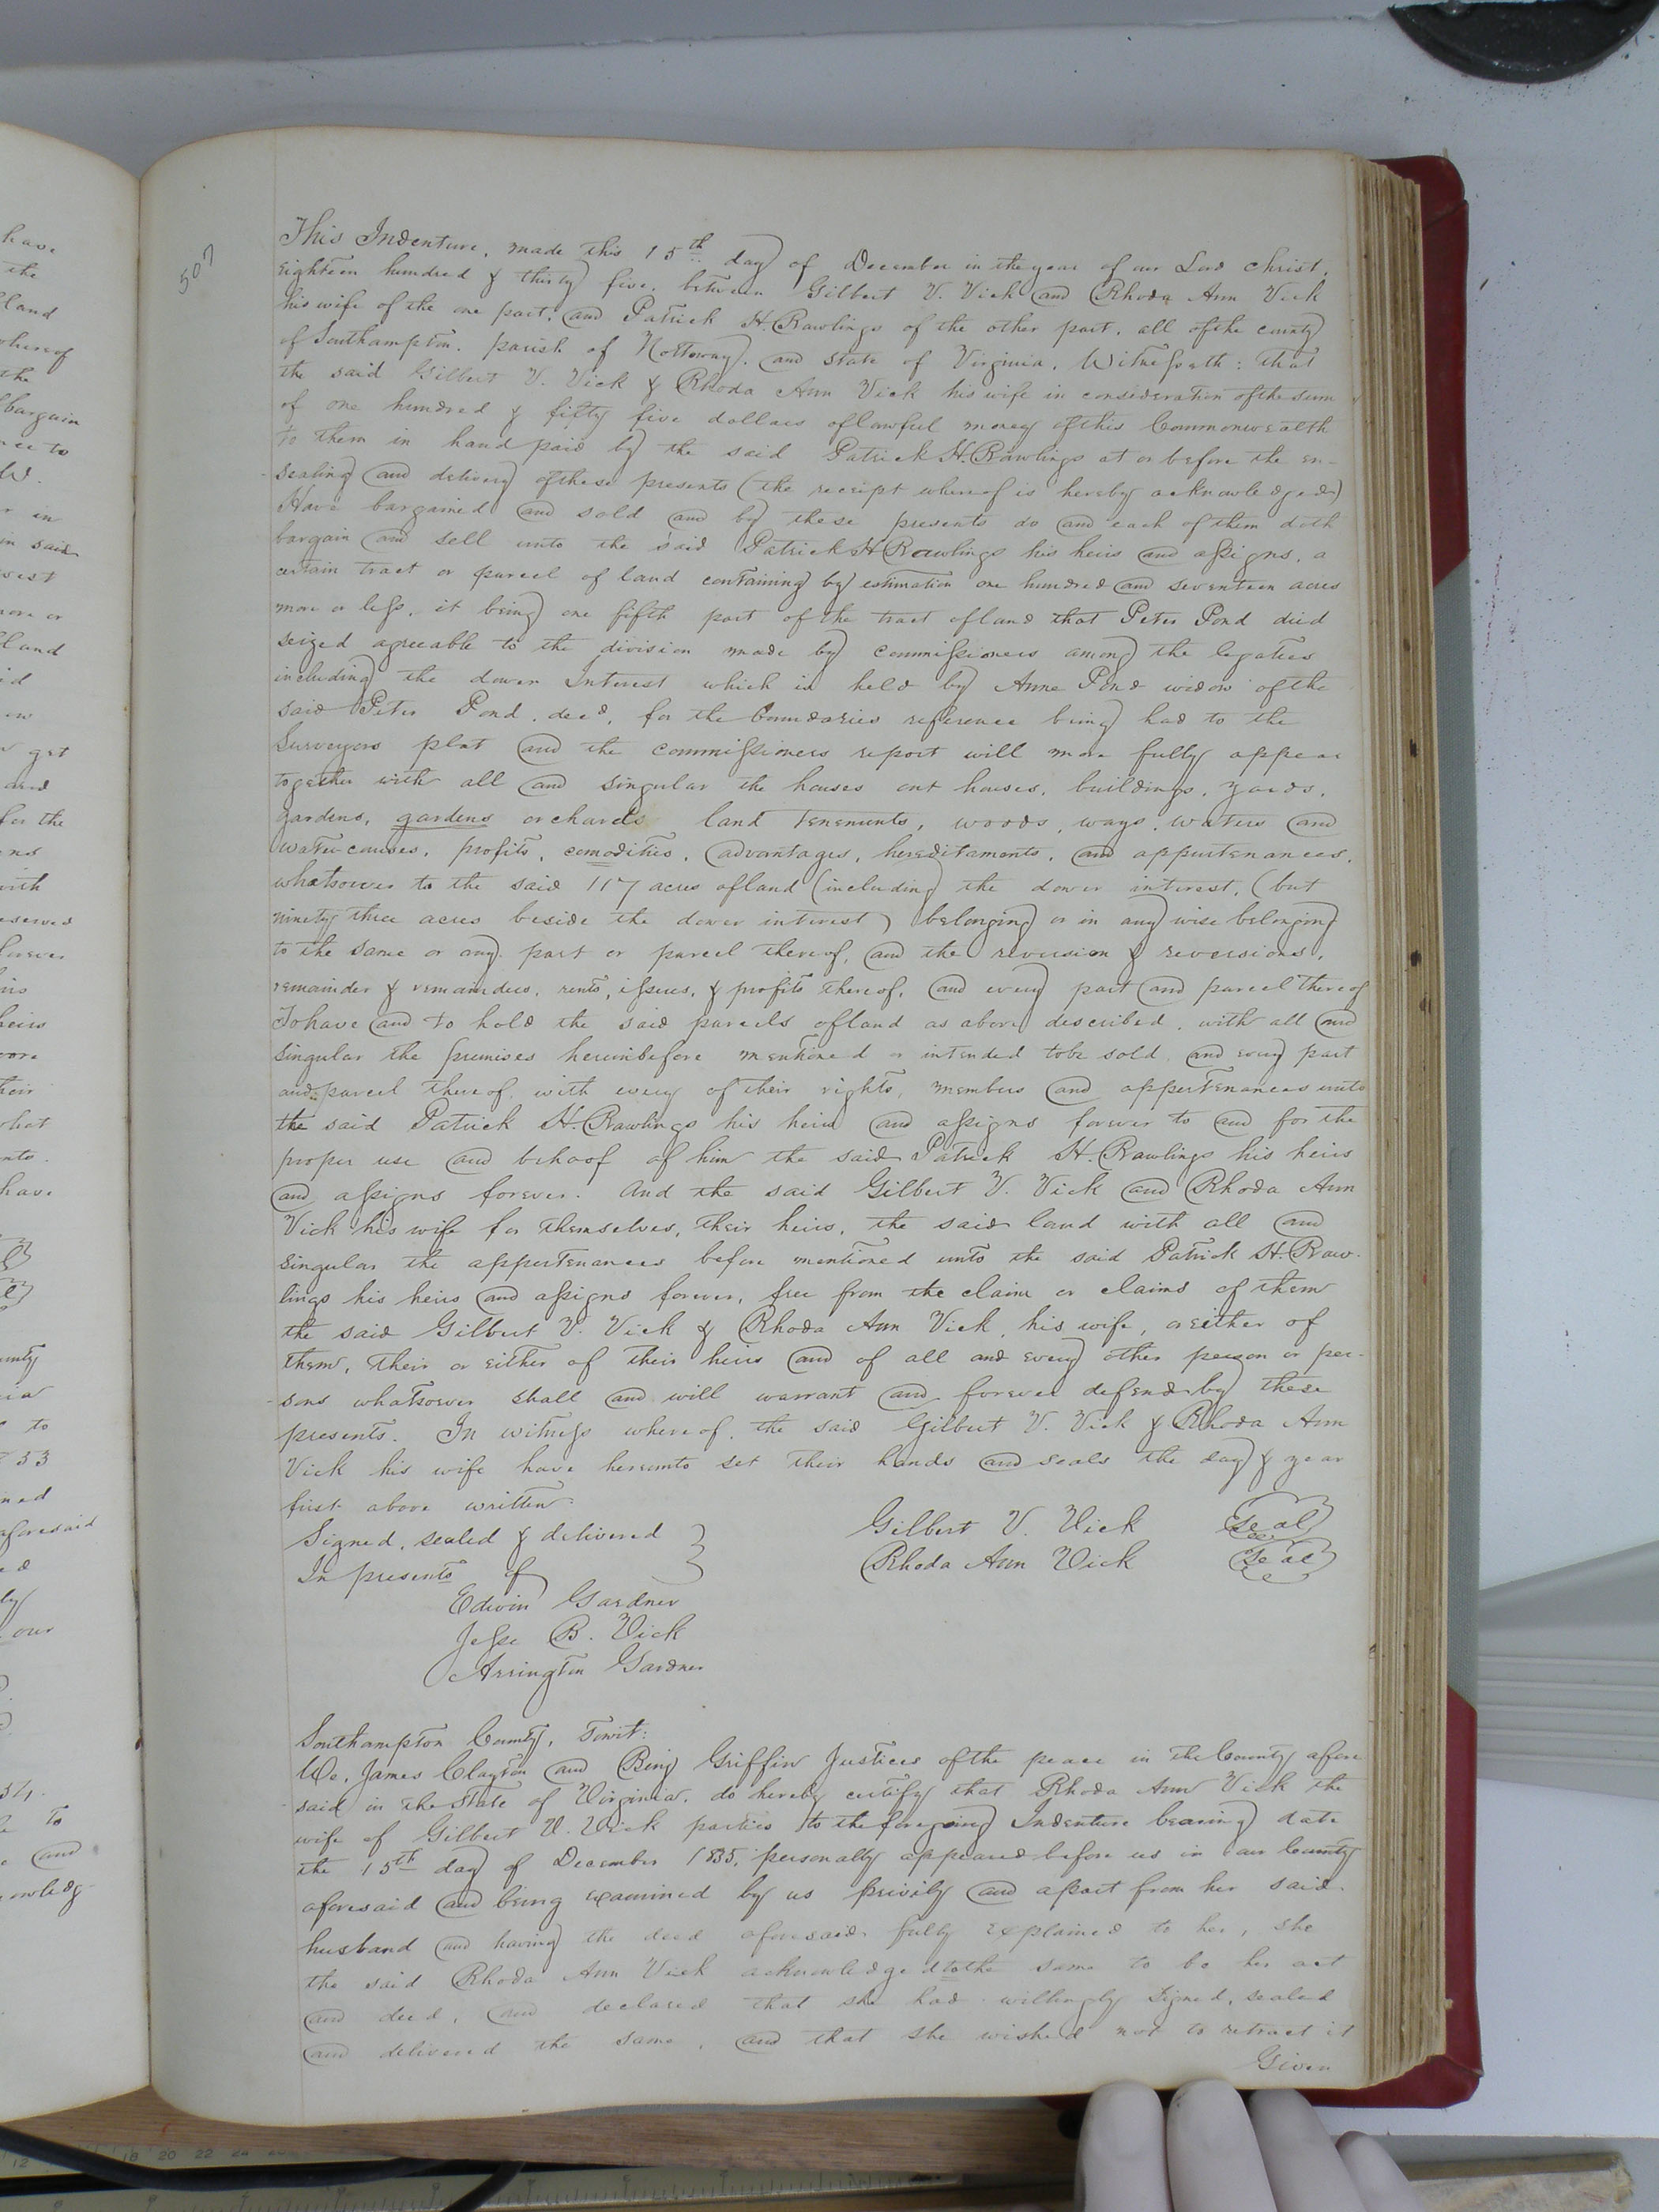 have
the
land
whereof
the
bargain
nce to
W.
r in
in said
west
more or
land
id
w get
and
for the
nd
with
eserved
his
heirs
their
what
nto.
have
to
53
aforesaid
ed
our
to
and
507
This Indenture, made this 15th day of December in the year of our Lord Christ,
eighteen hundred & thirty five, between Gilbert V. Vick and Rhoda Ann Vick
his wife of the one part, and Patrick H. Rawlings of the other part, all of the county
of Southampton, parish of Nottoway, and state of Virginia, Witnesseth: that
the said Gilbert V. Vick & Rhoda Ann Vick his wife in consideration of the sum
of one hundred & fifty five dollars of lawful money of this Commonwealth
to them in hand paid by the said Patrick H. Rawlings at or before the en-
sealing and delivery of these presents (the receipt whereof is hereby acknowledged)
Have bargained and sold and by these presents do and each of them doth
bargain and sell unto the said Patrick H Rawlings his heirs and assigns, a
certain tract or parcel of land containing by estimation one hundred and seventeen acres
more or less, it being one fifth part of the tract of land that Peter Pond died
seized agreeable to the division made by commissioners among the legaties
including the dower Interest which is held by Anne Pond widow of the
said Peter Pond, decd, for the boundaries reference being had to the
Surveyors plat and the commissioners report will more fully appear
together with all and singular the houses out houses, buildings, yards,
gardens, gardens orchards land tenements, woods, ways, waters and
water causes, profits, comodities, advantages, hereditaments, and appurtenances,
whatsoever to the said 117 acres of land (including the dower interest, (but
ninety three acres beside the dower interest) belonging or in any wise belonging
to the same or any part or parcel thereof, and the reversion & reversions,
remainder & remainders, rents, issues, & profits thereof, and every part and parcel thereof
To have and to hold the said parcels of land as above described, with all and
singular the premises hereinbefore mentioned or intended to be sold, and every part
and parcel thereof, with every of their rights, members and appertenances unto
the said Patrick H. Rawlings his heirs and assigns forever to and for the
proper use and behoof of him the said Patrick H. Rawlings his heirs
and assigns forever. And the said Gilbert V. Vick and Rhoda Ann
Vick his wife for themselves, their heirs, the said land with all and
singular the appertenances before mentioned unto the said Patrick H. Raw-
lings his heirs and assigns forever, free from the claim or claims of them
the said Gilbert V. Vick & Rhoda Ann Vick, his wife, or either of
them, their or either of their heirs and of all and every other person or per-
sons whatsoever shall and will warrant and forever defend by these
presents. In witness whereof, the said Gilbert V. Vick & Rhoda Ann
Vick his wife have hereunto set their hands and seals the day & year
first above written.
Signed, sealed & delivered } Gilbert V. Vick Seal
In presents of } Rhoda Ann Vick Seal
Edwin Gardner
Jesse B. Vick
Arrington Gardner
Southampton County, Towit:
We, James Clayton and Benj Griffin Justices of the peace in the County afore
said in the State of Virginia, do hereby certify that Rhoda Ann Vick the
wife of Gilbert V. Vick parties to the foregoing Indenture bearing date
the 15th day of December 1835, personally appeared before us in our County
aforesaid and being examined by us privily and apart from her said
husband and having the deed aforesaid fully explained to her, she
the said Rhoda Ann Vick acknowledged to the same to be her act
and deed, and declared that she had willingly signed, sealed
and delivered the same, and that she wished not to retract it
Given